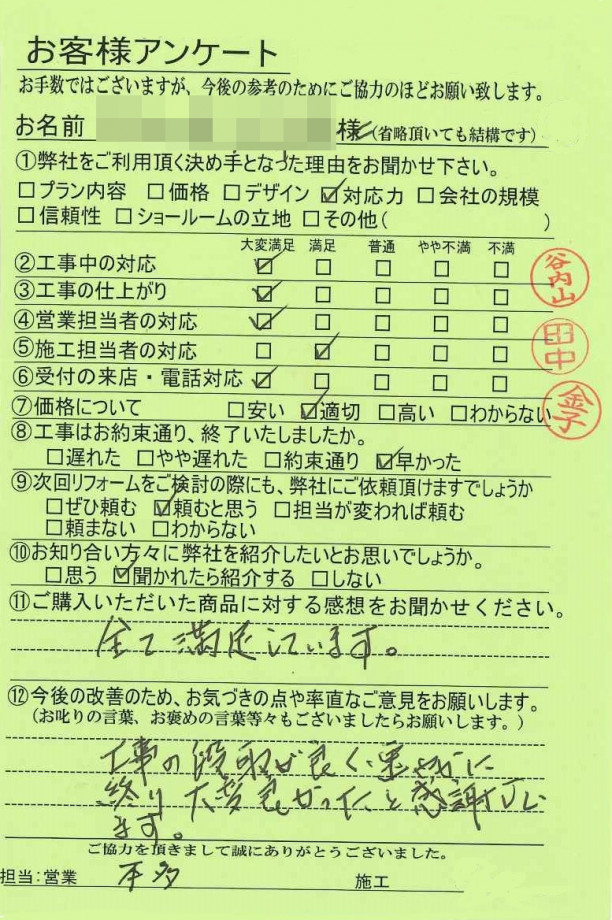 お客様アンケート
お手数ではございますが、今後の参考のためにご協力のほどお願い致します。
お名前 様 (省略頂いても結構です)
①弊社をご利用頂く決め手となった理由をお聞かせ下さい。
□プラン内容 □価格 □デザイン ☑対応力 □会社の規模
□信頼性 □ショールームの立地 □その他( )
大変満足 満足 普通 やや不満 不満
②工事中の対応 ☑ □ □ □ □
③工事の仕上がり ☑ □ □ □ □
④営業担当者の対応 ☑ □ □ □ □
⑤施工担当者の対応 □ ☑ □ □ □
⑥受付の来店・電話対応 ☑ □ □ □ □
谷内山
田中
金子
⑦価格について □安い ☑適切 □高い □わからない
⑧工事はお約束通り、終了いたしましたか。
□遅れた □やや遅れた □約束通り ☑早かった
⑨次回リフォームをご検討の際にも、弊社にご依頼頂けますでしょうか
□ぜひ頼む ☑頼むと思う □担当が変われば頼む
□頼まない □わからない
⑩お知り合い方々に弊社を紹介したいとお思いでしょうか。
□思う ☑聞かれたら紹介する □しない
⑪ご購入いただいた商品に対する感想をお聞かせください。
全て満足しています。
⑫今後の改善のため、お気づきの点や率直なご意見をお願いします。
(お叱りの言葉、お褒めの言葉等々もございましたらお願いします。)
工事の段取が良く、速やかに
終り大変良かったと感謝致し
ます。
ご協力を頂きまして誠にありがとうございました。
担当:営業 本多 施工